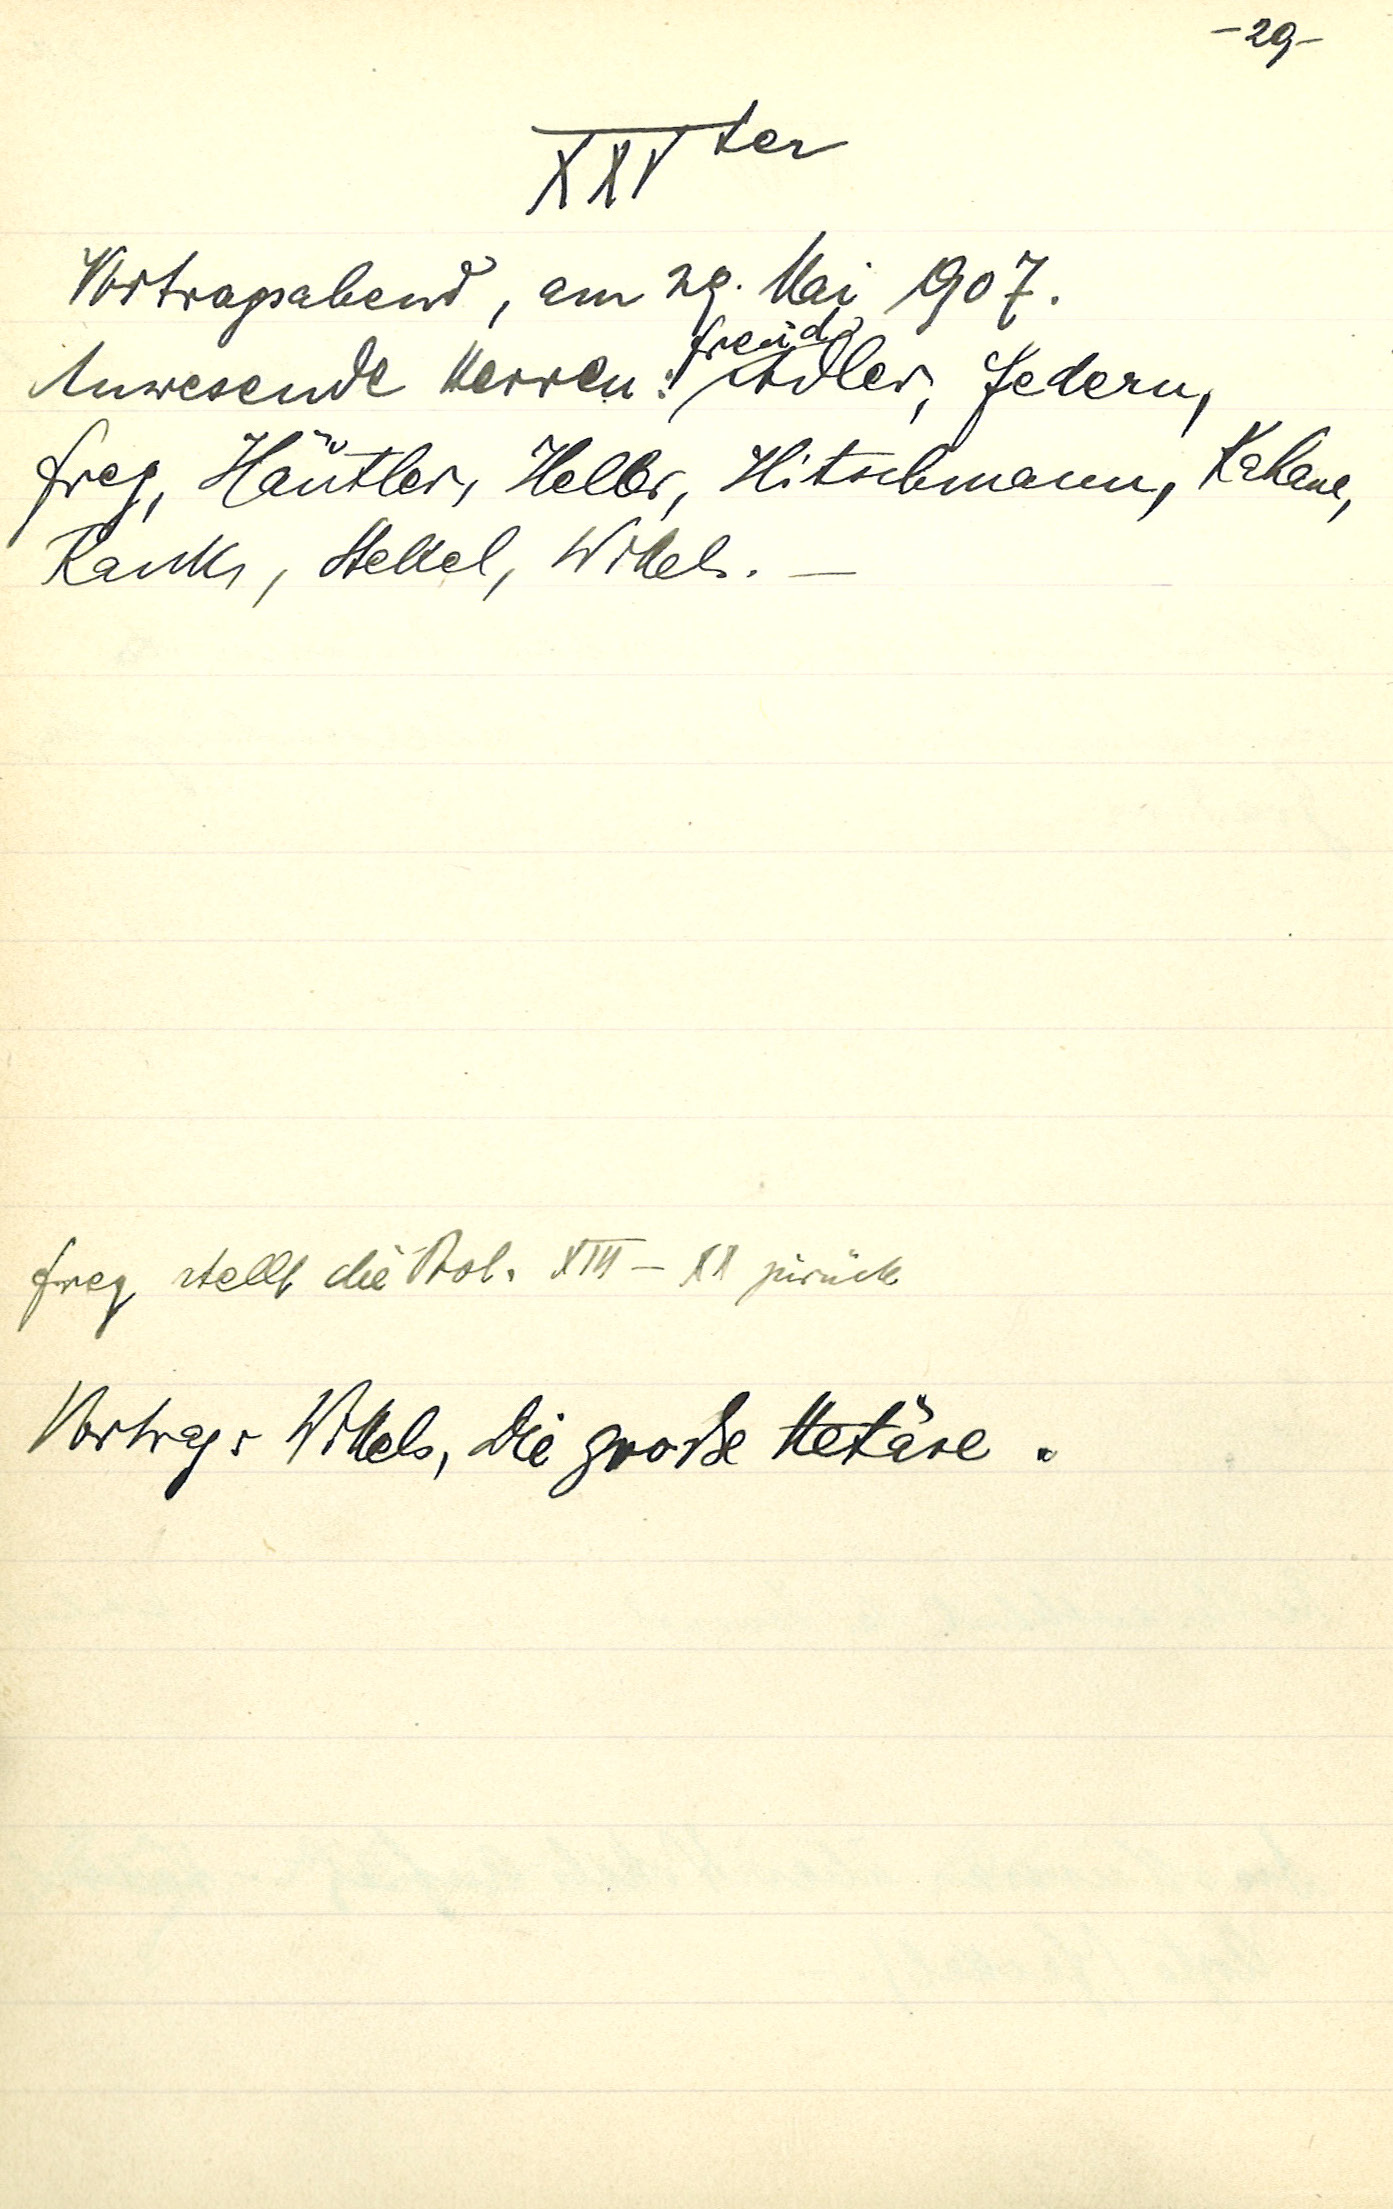 -29-
XXVter
Vortragsabend, am 29. Mai 1907.
Freud,
Anwesende Herren: Adler, Federn,
Frey, Häutler, Heller, Hitschmann, Kahane,
Rank, Stekel, Wittels. —
Frey stellt die Prot. XIII - XX zurück
Vortrag: Wittels, Die große Hetäre.